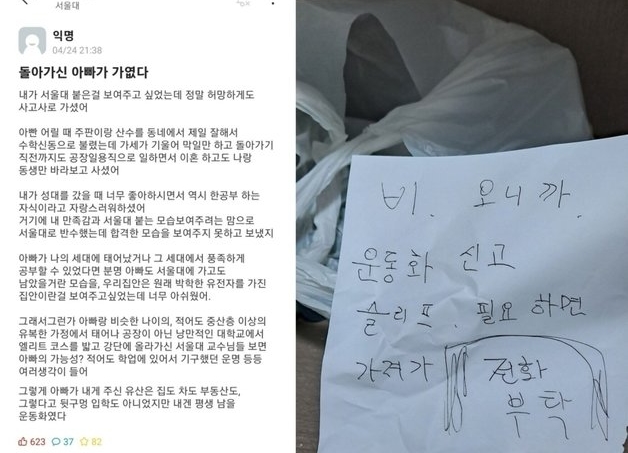 서울대
익명
04/24 21:38
돌아가신 아빠가 가엾다
내가 서울대 붙은걸 보여주고 싶었는데 정말 허망하게도
사고사로 가셨어
아빤 어릴 때 주판이랑 산수를 동네에서 제일 잘해서
수학신동으로 불렸는데 가세가 기울어 막일만 하고 돌아가기
직전까지도 공장일용직으로 일하면서 이혼 하고도 나랑
동생만 바라보고 사셨어
내가 성대를 갔을 때 너무 좋아하시면서 역시 한공부 하는
자식이라고 자랑스러워하셨어
거기에 내 만족감과 서울대 붙는 모습보여주려는 맘으로
서울대로 반수했는데 합격한 모습을 보여주지 못하고 보냈지
아빠가 나의 세대에 태어났거나 그 세대에서 풍족하게
공부할 수 있었다면 분명 아빠도 서울대에 가고도
남았을거란 모습을, 우리집안은 원래 박학한 유전자를 가진
집안이란걸 보여주고싶었는데 너무 아쉬웠어.
그래서그런가 아빠랑 비슷한 나이의, 적어도 중산층 이상의
유복한 가정에서 태어나 공장이 아닌 낭만적인 대학교에서
엘리트 코스를 밟고 강단에 올라가신 서울대 교수님들 보면
아빠의 가능성? 적어도 학업에 있어서 기구했던 운명 등등
여러생각이 들어
그렇게 아빠가 내게 주신 유산은 집도 차도 부동산도,
그렇다고 뒷구멍 입학도 아니었지만 내겐 평생 남을
운동화였다
623 37 82
비. 오니까.
운동화 신고
슬리프. 필요하면
가져가 전화
부탁